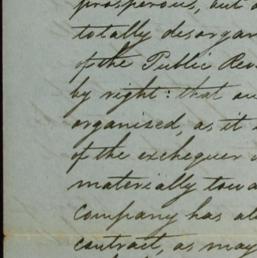 prosperous, but
totally disorgan
of the Public Rev
by right: that ou
organised, as it
of the exchequer
materially towa
Company has al
contract, as may